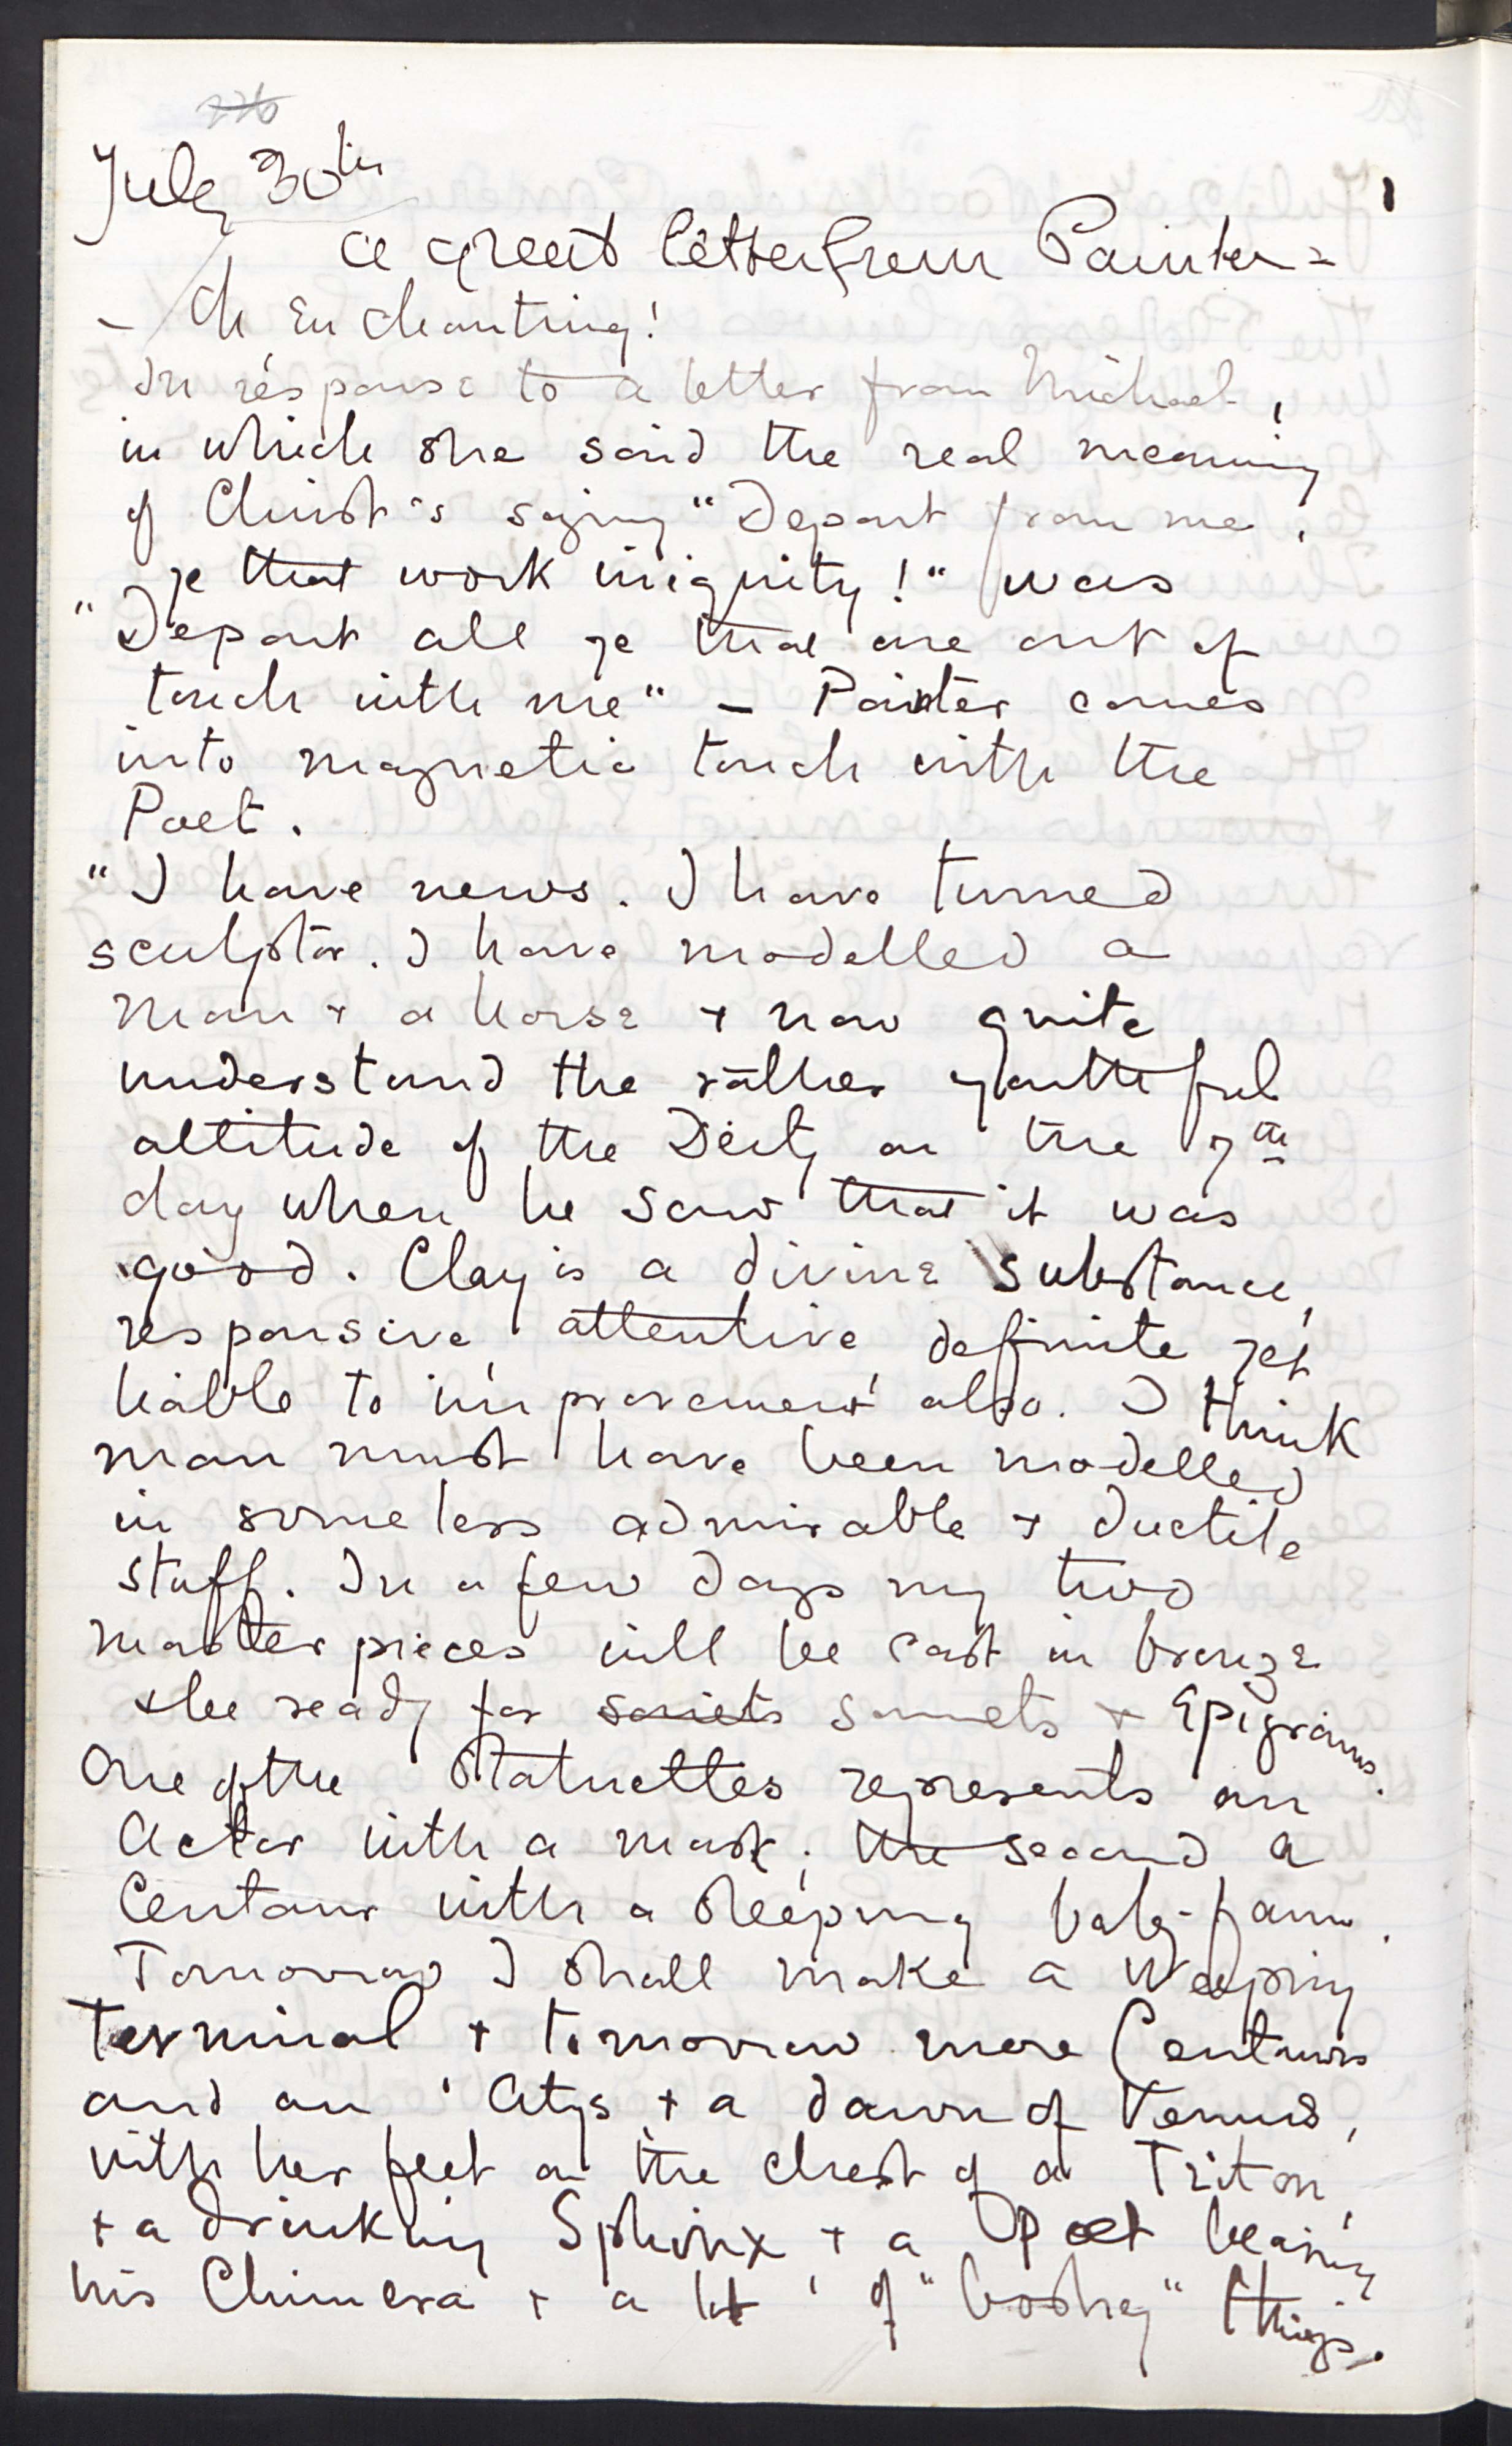 226
July 30th
a great letter from Painter –
– Oh Enchanting!
In response to a letter from Michael,
in which she said the real meaning
of Christ's saying "Depart from me,
ye that work iniquity!" was
"Depart all ye that are out of
touch with me" – Painter comes
into magnetic touch with the
Poet.
"I have news. I have turned
sculptor. I have modelled a
man + a horse + now quite
understand the rather youthful
attitude of the Deity on the 7th
day when he saw that it was
good. Clay is a divine substance,
responsive attentive definite yet
liable to improvement also. I think
man must have been modelled
in some less admirable + ductile
stuff. In a few days my two
masterpieces will be cast in bronze
+ be ready for soniets sonnets + Epigrams.
One of the Statuettes represents an
Actor with a mask; the second a
Centaur with a sleeping baby-faun.
Tomorrow I shall make a Weeping
Terminal + tomorrow more Centaurs
and an Atys + a dawn of Venus,
with her feet on the chest of a Triton,
+ a drinking Sphinx + a Poet bearing
his Chimera + a lot of "boshy" things.